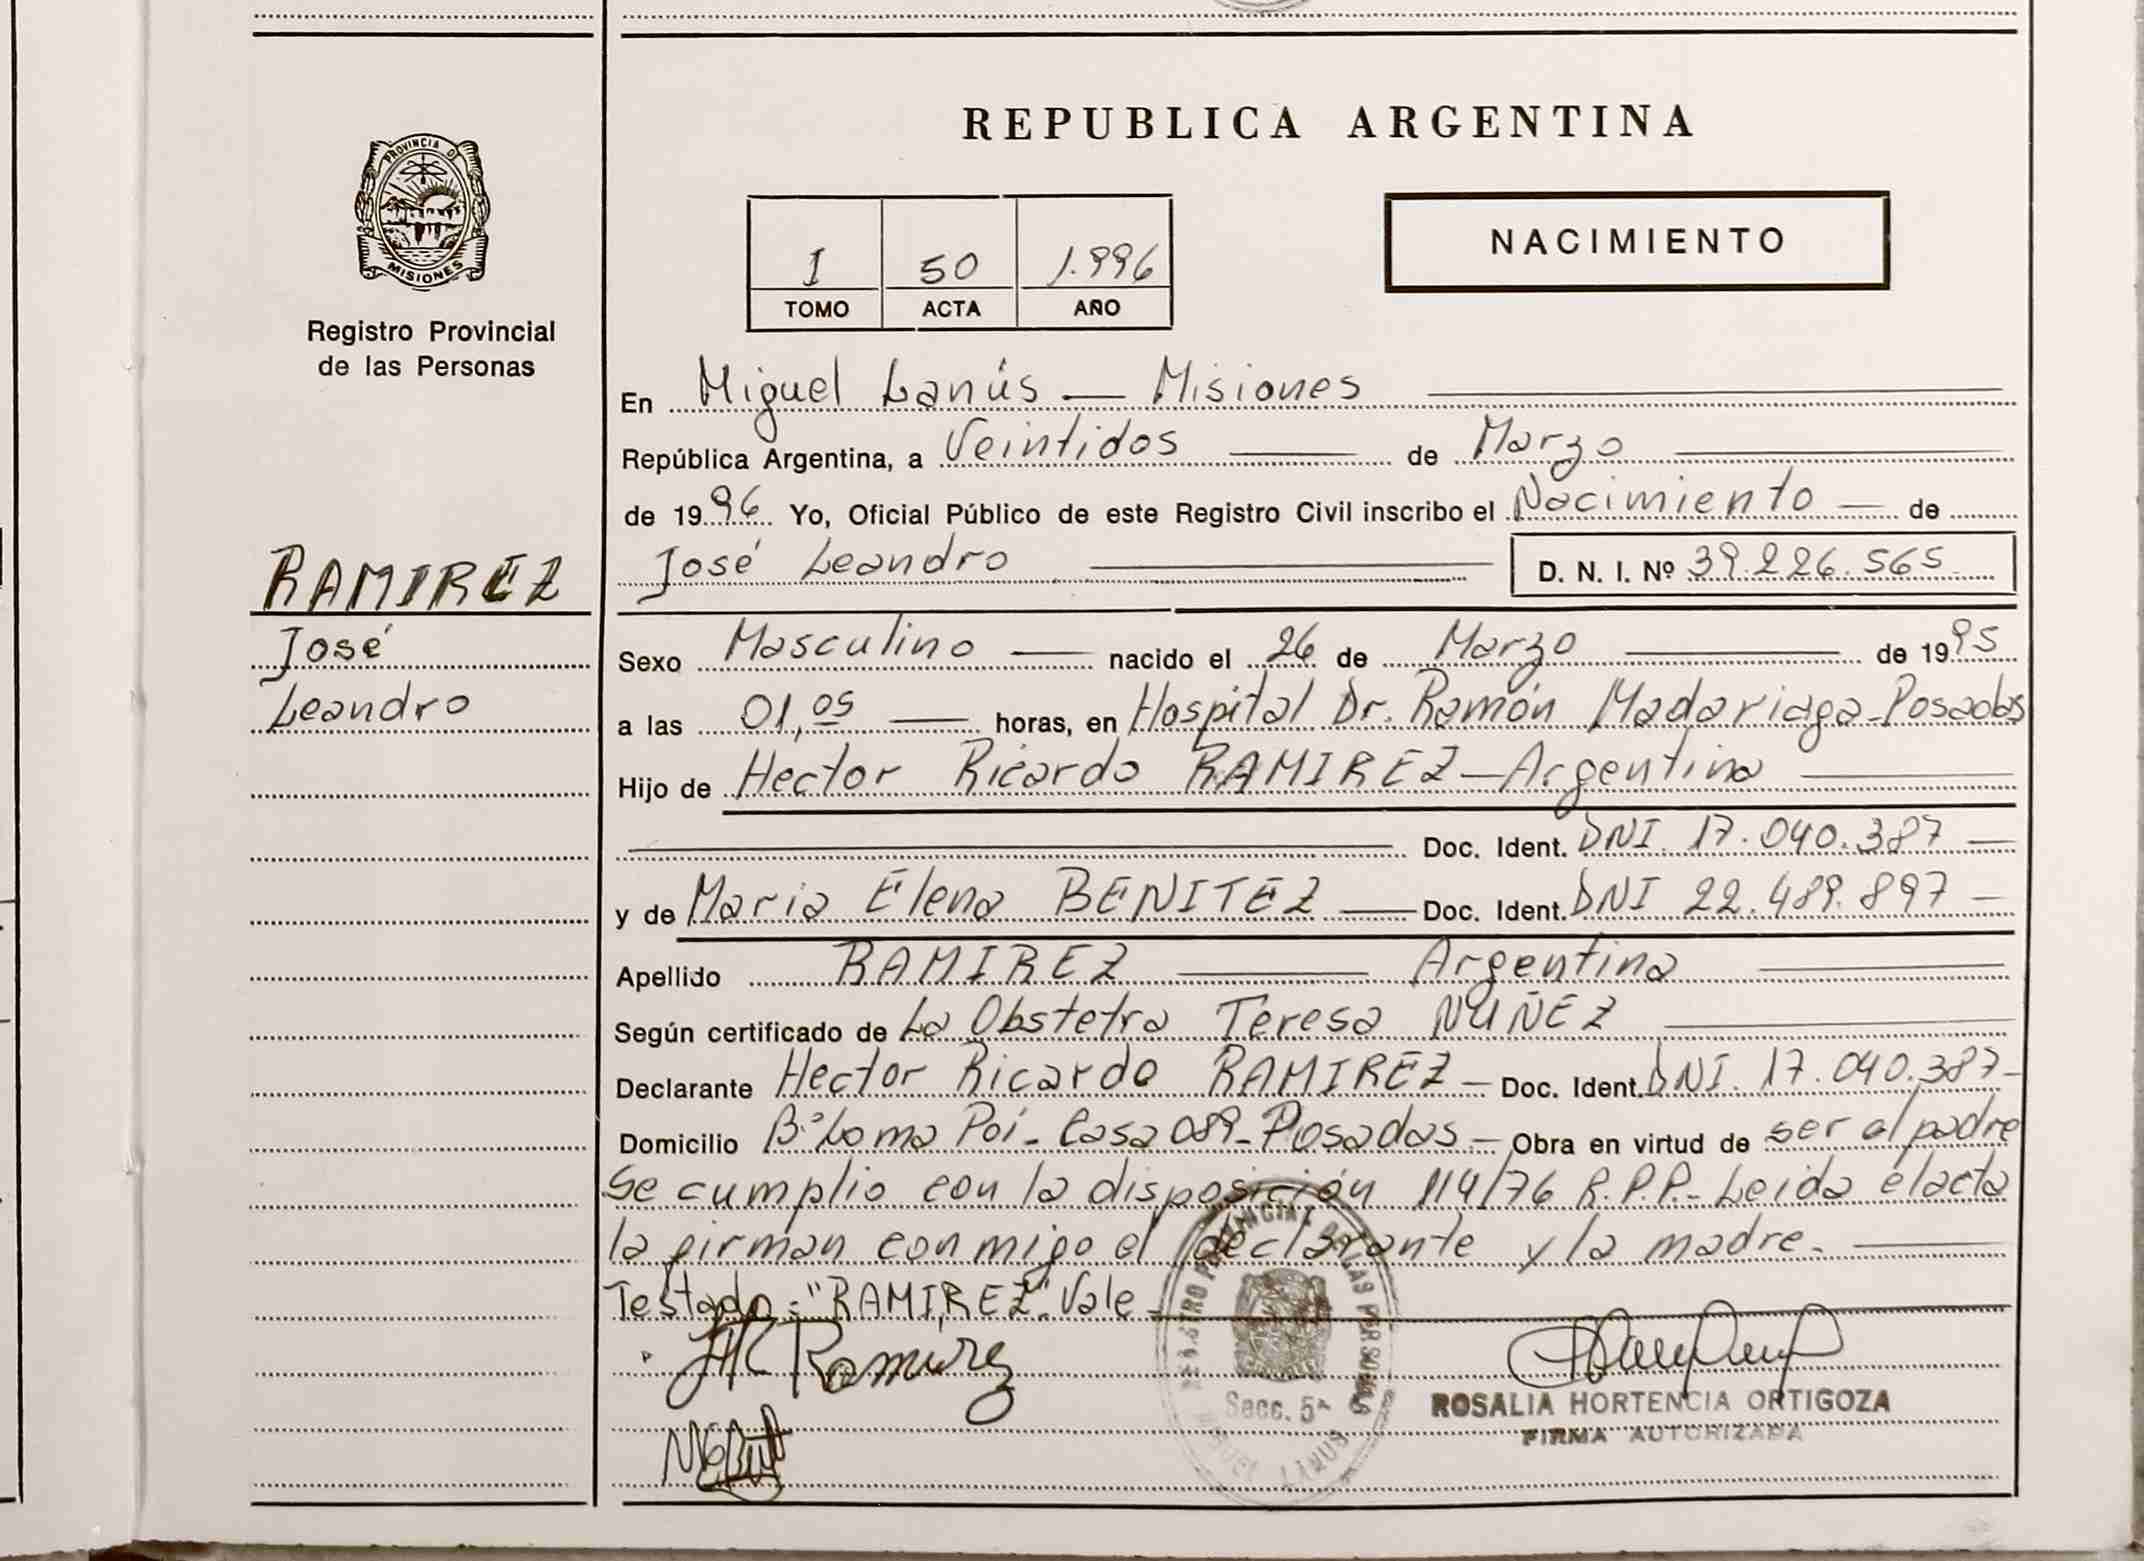 PROVINCIA D
MISIONES
Registro Provincial
de las Personas
RAMIREZ
José
Leandro
REPUBLICA ARGENTINA
I 50 1.996
TOMO ACTA AÑO
NACIMIENTO
En Miguel Lanús — Misiones
República Argentina, a Veintidos de Marzo
de 1996 Yo, Oficial Público de este Registro Civil inscribo el Nacimiento — de
José Leandro D. N. I. Nº 39.226.565
Sexo Masculino — nacido el 26 de Marzo de 1995
a las 01,05 — horas, en Hospital Dr. Ramón Madariaga-Posadas
Hijo de Hector Ricardo RAMIREZ — Argentina
Doc. Ident. DNI. 17.040.387 —
y de Maria Elena BENITEZ — Doc. Ident. DNI 22.489.897 —
Apellido RAMIREZ — Argentina
Según certificado de La Obstetra Teresa NUÑEZ
Declarante Hector Ricardo RAMIREZ — Doc. Ident. DNI. 17.040.387 —
Domicilio B° Loma Poi - Casa 089 - Posadas — Obra en virtud de ser el padre
Se cumplio con la disposición 114/76 R.P.P.- Leida el acta
la firman conmigo el declarante y la madre. —
Testado: "RAMIREZ". Vale —
HR Ramirez
REGISTRO PROVINCIAL DE LAS PERSONAS
Secc. 5ª
MIGUEL LANUS
ROSALIA HORTENCIA ORTIGOZA
FIRMA AUTORIZADA